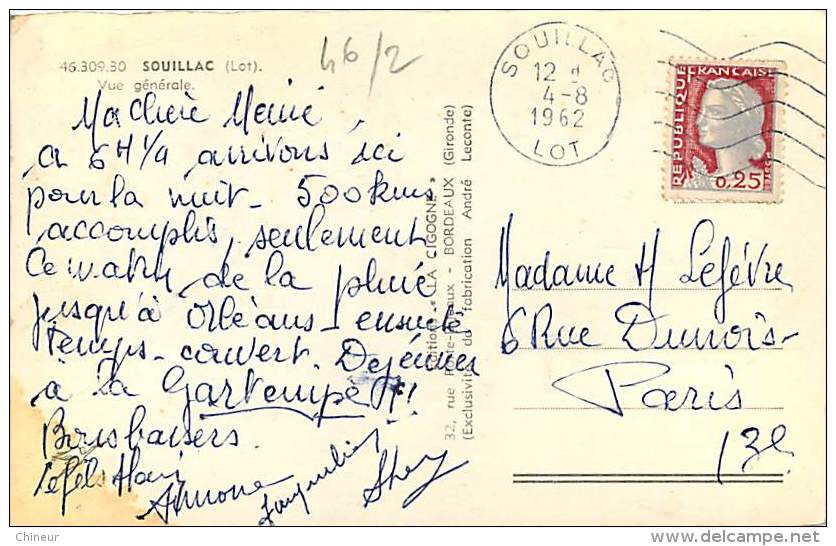 46.309.30 SOUILLAC (Lot).
Vue générale.
46/2
Ma chère Mémé,
à 6H 1/4 arrivons ici
pour la nuit - 500 kms
accomplis, seulement
Ce matin de la pluie
jusqu'à Orléans - ensuite
temps - couvert. Dejeuner
à la Gartempe
Bons baisers.
Simone
Jacqueline
"LA CIGOGNE"
32, rue - BORDEAUX (Gironde)
(Exclusivité de fabrication André Leconte)
SOUILLAC
12 H
4-8
1962
LOT
REPUBLIQUE FRANÇAISE
0,25
Madame H Lefévre
6 Rue Dunois -
Paris
13e
Chineur
delcampe.net